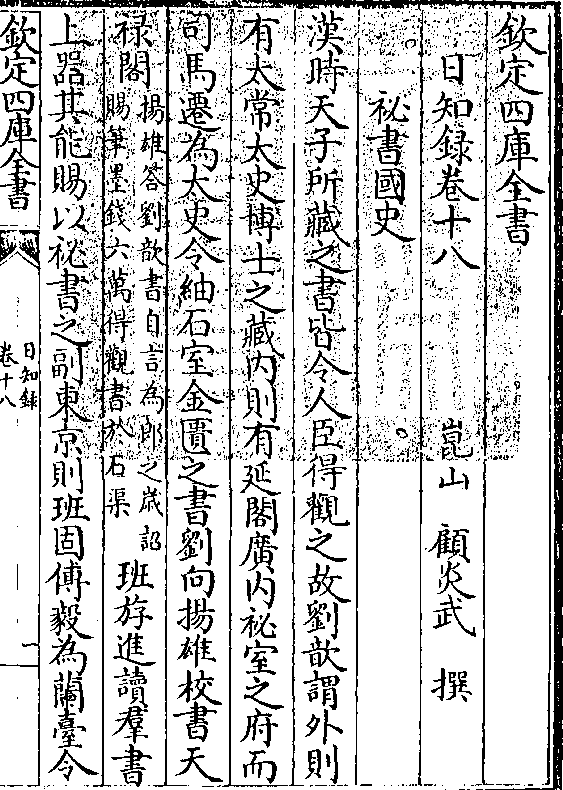 欽定四庫全書
日知録卷十八
崑山 顧炎武 撰
祕書國史
漢時天子所藏之書皆令人臣得觀之故劉歆謂外則
有太常太史博士之藏内則有延閣廣内祕室之府而
司馬遷為太史令紬石室金匱之書劉向揚雄校書天
禄閣
揚雄答劉歆書自言為郎之嵗詔
賜筆墨錢六萬得觀書於石渠
班斿進讀羣書
上器其能賜以祕書之副東京則班固傅毅為蘭臺令
欽定四庫全書
日知録
卷十八
一